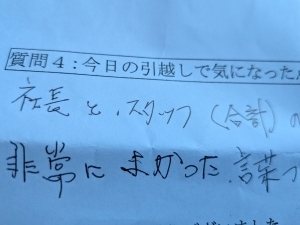 質問4:今日の引越しで気になった
社長と、スタッフ(合計)の
非常によかった。言葉づ